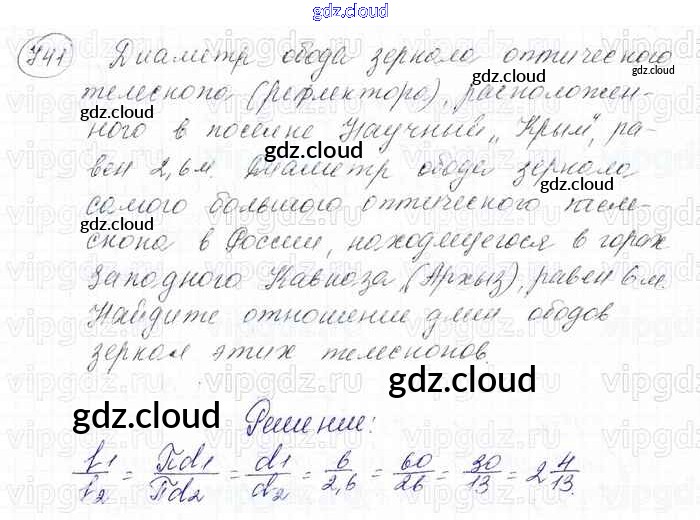 gdz.cloud
741 Диаметр обода зеркала оптического
телескопа (рефлектора), расположен-
ного в поселке Научный „Крым", ра-
вен 2,6м. Диаметр обода зеркала
самого большого оптического теле-
скопа в России, находящегося в горах
Западного Кавказа (Архыз), равен 6м.
Найдите отношение длин ободов
зеркал этих телескопов.
gdz.cloud
gdz.cloud
gdz.cloud
gdz.cloud
gdz.cloud
gdz.cloud
gdz.cloud
Решение:
l1/l2 = Πd1/Πd2 = d1/d2 = 6/2,6 = 60/26 = 30/13 = 2 4/13.